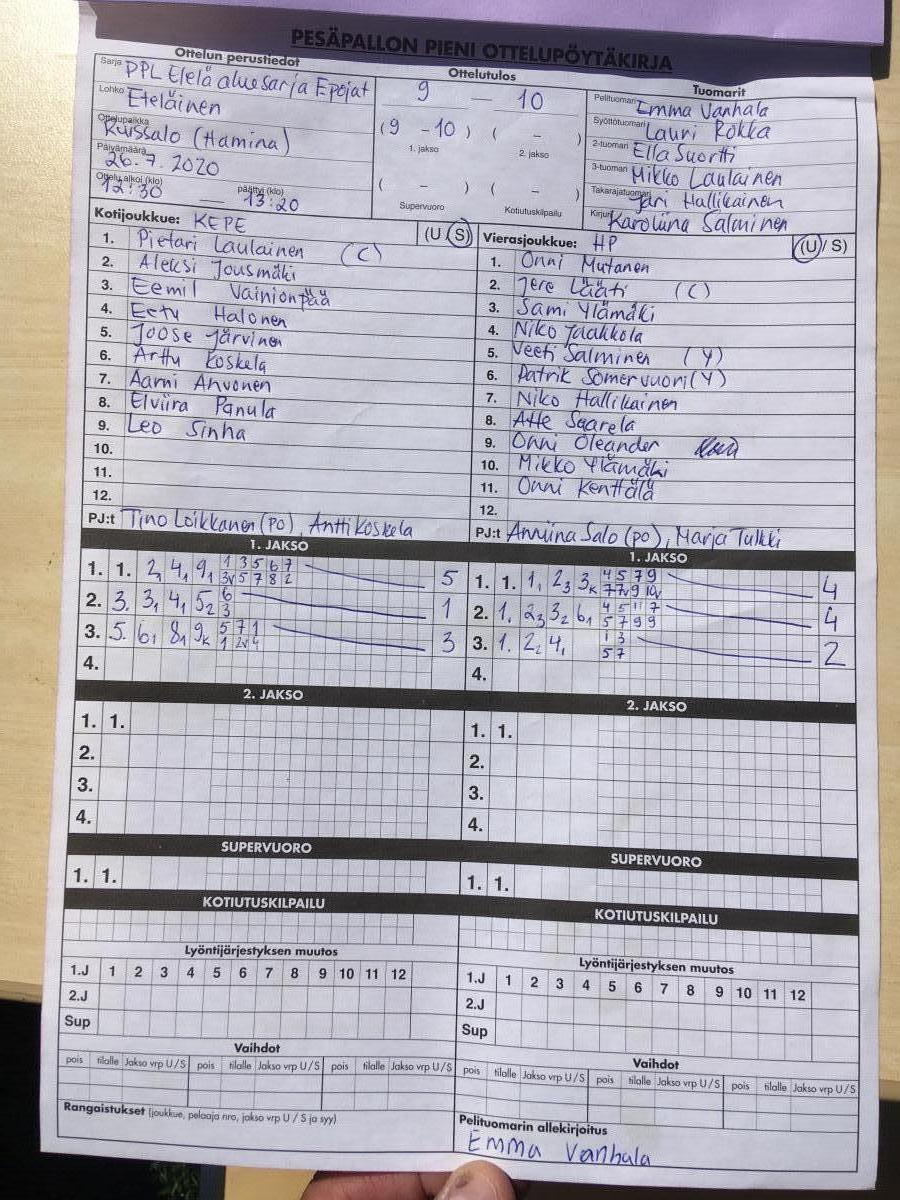 PESÄPALLON PIENI OTTELUPÖYTÄKIRJA
Ottelun perustiedot
Sarja PPL Etelä aluesarja Epojat
Lohko Eteläinen
Ottelupaikka Ruissalo (Hamina)
Päivämäärä 26.7.2020
Ottelu alkoi (klo) 12:30 — päättyi (klo) 13:20
Ottelutulos
9 — 10
(9 - 10) ( - )
1. jakso 2. jakso
( - ) ( - )
Supervuoro Kotiutuskilpailu
Tuomarit
Pelituomari Emma Vanhala
Syöttötuomari Lauri Rokka
2-tuomari Ella Suortti
3-tuomari Mikko Laulainen
Takarajatuomari Jari Hallikainen
Kirjuri Karoliina Salminen
Kotijoukkue: KEPE (U/S)
1. Pietari Laulainen (C)
2. Aleksi Jousmäki
3. Eemil Vainionpää
4. Eetu Halonen
5. Joose Järvinen
6. Arttu Koskela
7. Aarni Ahvonen
8. Elviira Panula
9. Leo Sinha
10.
11.
12.
PJ:t Tino Loikkanen (PO), Antti Koskela
Vierasjoukkue: HP (U/S)
1. Onni Mutanen
2. Jere Lääti (C)
3. Sami Ylämäki
4. Niko Jaakkola
5. Veeti Salminen (Y)
6. Patrik Somervuori (Y)
7. Niko Hallikainen
8. Atte Saarela
9. Onni Oleander
10. Mikko Ylämäki
11. Onni Kenttälä
12.
PJ:t Anniina Salo (PO), Marja Tulkki
1. JAKSO
1. 1. 2, 4, 9, 1 3 5 6 7 5
3v 5 7 8 2
2. 3. 3, 4, 5₂ 6 1
3
3. 5. 6, 8, 9k 5 7 1 3
1 2v 4
4.
1. JAKSO
1. 1. 1, 2₃ 3k 4 5 7 9 4
7 7v 9 10v
2. 1. 2₃ 3₂ 6, 4 5 11 7 4
5 7 9 9
3. 1. 2₂ 4, 1 3 2
5 7
4.
2. JAKSO
1. 1.
2.
3.
4.
2. JAKSO
1. 1.
2.
3.
4.
SUPERVUORO
1. 1.
SUPERVUORO
1. 1.
KOTIUTUSKILPAILU
KOTIUTUSKILPAILU
Lyöntijärjestyksen muutos
1.J 1 2 3 4 5 6 7 8 9 10 11 12
2.J
Sup
Lyöntijärjestyksen muutos
1.J 1 2 3 4 5 6 7 8 9 10 11 12
2.J
Sup
Vaihdot
pois tilalle Jakso vrp U/S pois tilalle Jakso vrp U/S pois tilalle Jakso vrp U/S
Vaihdot
pois tilalle Jakso vrp U/S pois tilalle Jakso vrp U/S pois tilalle Jakso vrp U/S
Rangaistukset (joukkue, pelaaja nro, jakso vrp U / S ja syy)
Pelituomarin allekirjoitus
Emma Vanhala